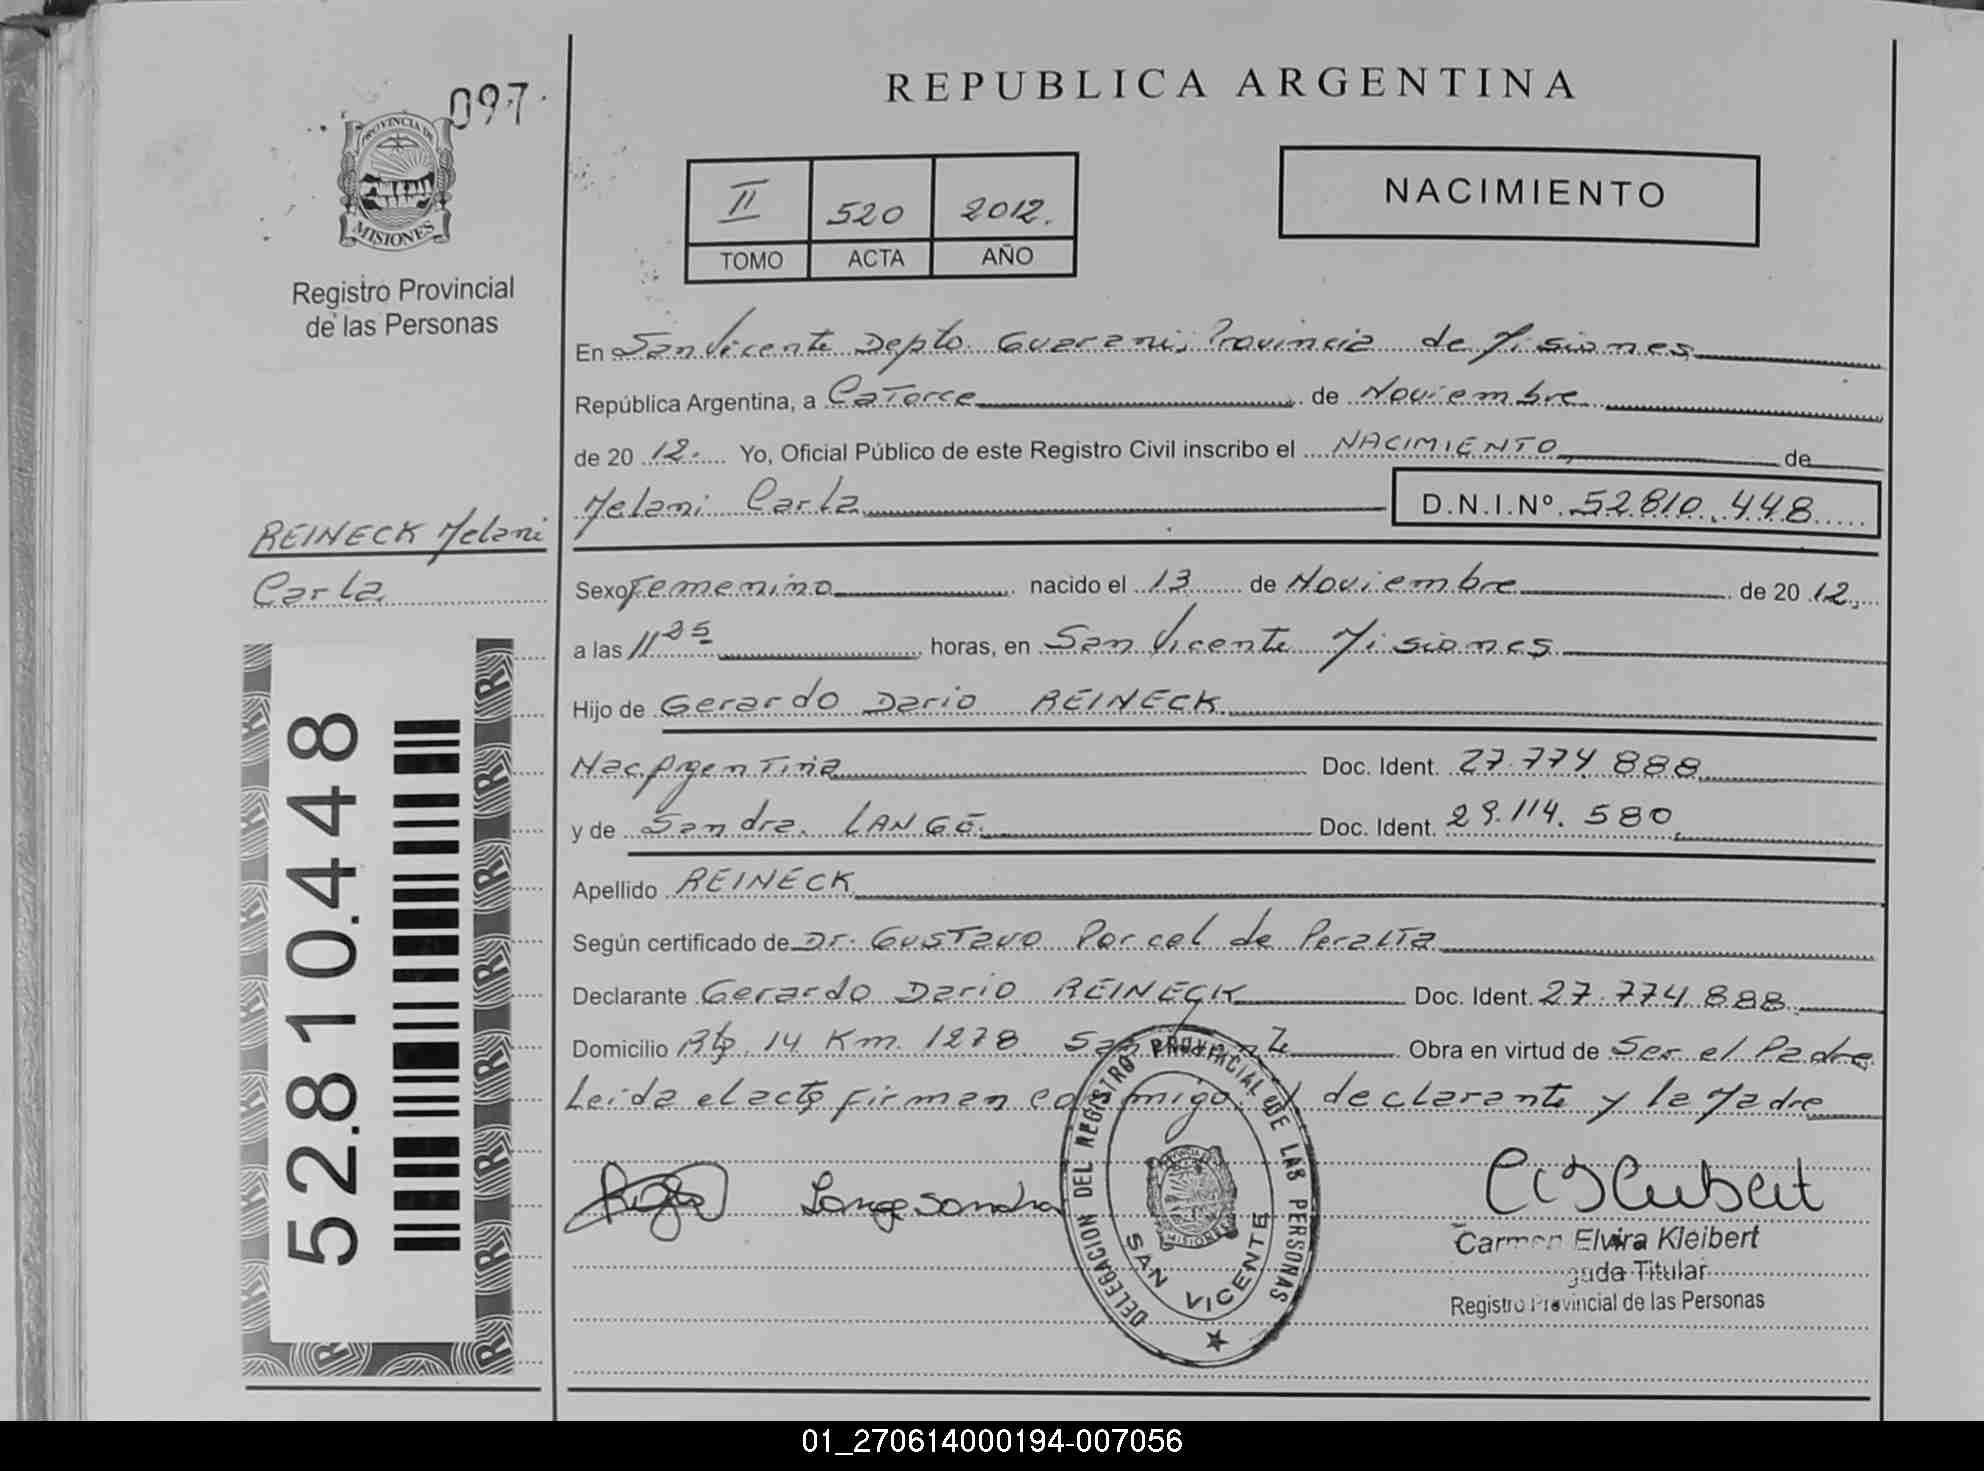 097
PROVINCIA DE
MISIONES
Registro Provincial
de las Personas
REINECK Melani
Carla
52.810.448
REPUBLICA ARGENTINA
NACIMIENTO
II 520 2012.
TOMO ACTA AÑO
En San Vicente Depto. Guarani, Provincia de Misiones
República Argentina, a Catorce de Noviembre
de 20 12. Yo, Oficial Público de este Registro Civil inscribo el NACIMIENTO, de
Melani Carla D.N.I.Nº 52.810.448
Sexo Femenino nacido el 13 de Noviembre de 20 12.
a las 11 25 horas, en San Vicente Misiones
Hijo de Gerardo Dario REINECK
Nac. Argentina Doc. Ident. 27.774.888
y de Sandra LANGE Doc. Ident. 29.114.580
Apellido REINECK
Según certificado de Dr. Gustavo Porcel de Peralta
Declarante Gerardo Dario REINECK Doc. Ident. 27.774.888
Domicilio Rta. 14 Km. 1278 San Obra en virtud de Ser el Padre
Leida el acta firman conmigo declarante y la Madre
Lange Sandra
DELEGACION DEL REGISTRO PROVINCIAL DE LAS PERSONAS
MISIONES
SAN VICENTE
Carmen Elvira Kleibert
Titular
Registro Provincial de las Personas
01_270614000194-007056